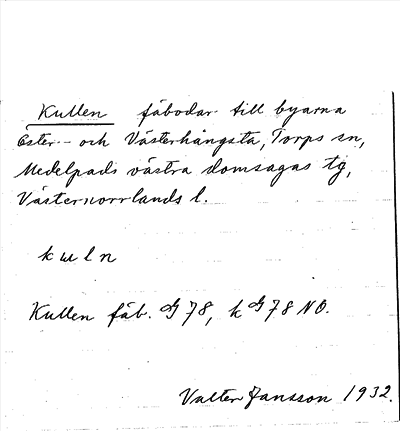 Kullen fäbodar till byarna
Öster- och Västerhångsta, Torps sn,
Medelpads västra domsagas tg,
Västernorrlands l.
k u l n
Kullen fäb. G 78, k G 78 NO.
Valter Jansson 1932.